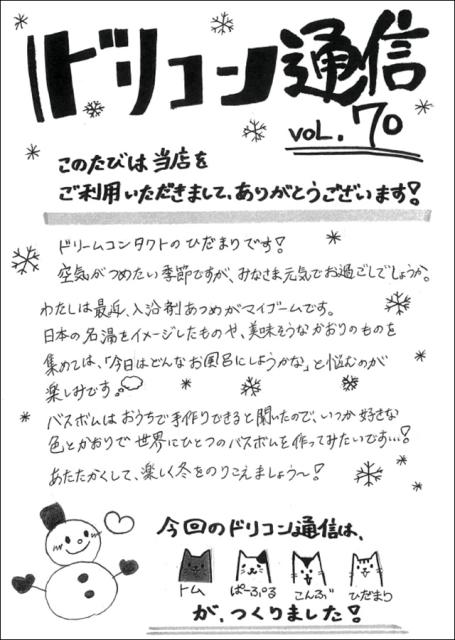 ドリコン通信
VOL.70
このたびは当店を
ご利用いただきまして、ありがとうございます!
ドリームコンタクトのひだまりです!
空気がつめたい季節ですが、みなさま元気でお過ごしでしょうか。
わたしは最近、入浴剤あつめがマイブームです。
日本の名湯をイメージしたものや、美味そうなかおりのものを
集めては、「今日はどんなお風呂にしようかな」と悩むのが
楽しみです。
バスボムはおうちで手作りできると聞いたので、いつか好きな
色とかおりで世界にひとつのバスボムを作ってみたいです…!
あたたかくして、楽しく冬をのりこえましょう〜!
今回のドリコン通信は、
トム ぱーぷる こんぶ ひだまり
が、つくりました!